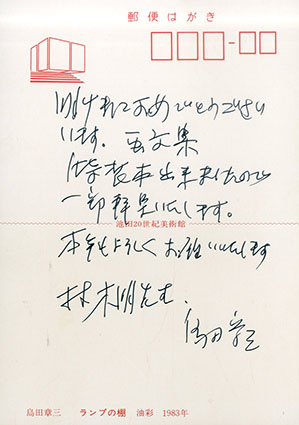 郵便はがき
明けましておめでとうござい
います。画文集
出来ましたので
一部拝呈いたします。
池田20世紀美術館
本年もよろしくお願いいたします
林 先生、
島田章三
島田章三 ランプの棚 油彩 1983年